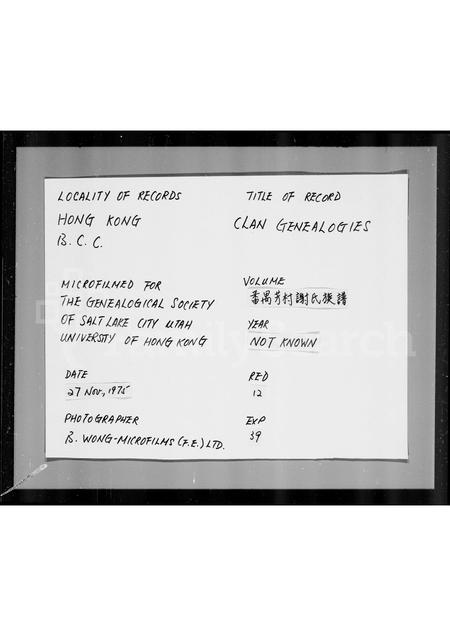 LOCALITY OF RECORDS
HONG KONG
B. C. C.
TITLE OF RECORD
CLAN GENEALOGIES
MICROFILMED FOR
THE GENEALOGICAL SOCIETY
OF SALT LAKE CITY UTAH
UNIVERSTY OF HONG KONG
VOLUME
番禺芳村謝氏族譜
YEAR
NOT KNOWN
DATE
27 Nov, 1975
RED
12
PHOTOGRAPHER
B. WONG-MICROFILMS (F.E.) LTD.
EXP
39
FamilySearch